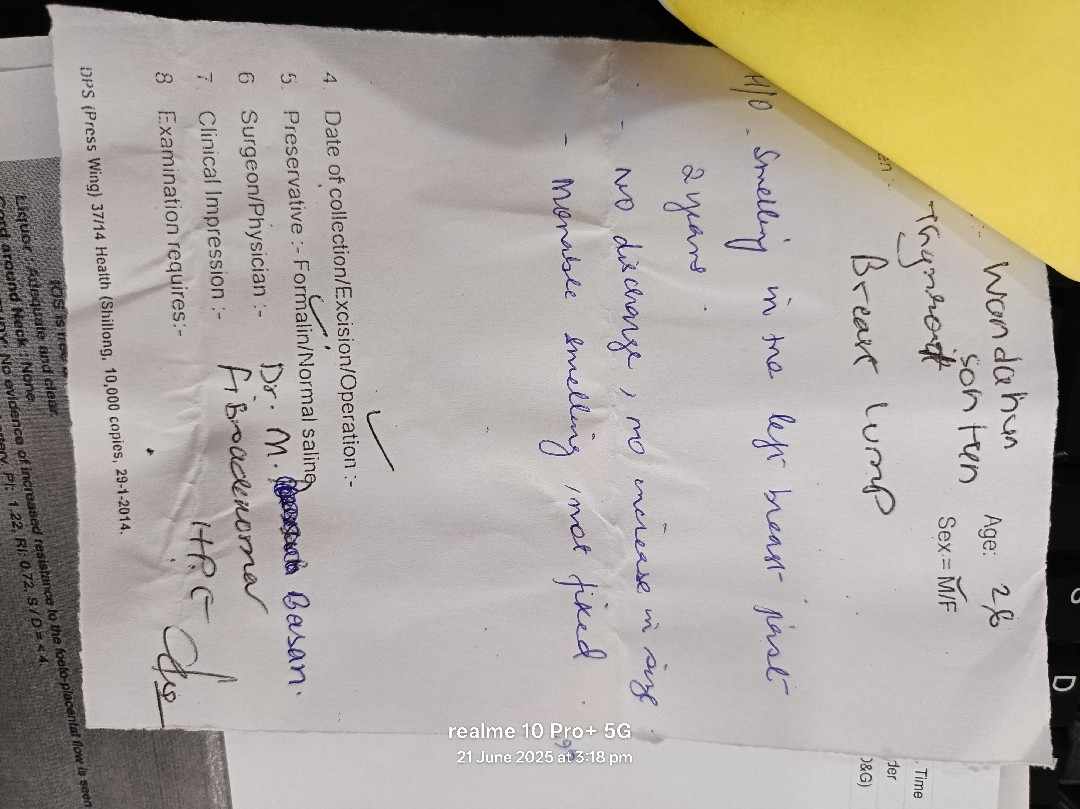 Wandahun
Sohtun
Age: 28
Sex:= M/F
en :-
Breast Lump
H/O - Smelling in the left breast past
2 years.
- No discharge, no increase in size
- Monable smelling, not fixed
4. Date of collection/Excision/Operation :-
5. Preservative :- Formalin/Normal saling
6 Surgeon/Physician :- Dr. M. Basan.
7. Clinical Impression :- Fibroadenoma
8 Examination requires:- HPE
DPS (Press Wing) 37/14 Health (Shillong, 10,000 copies, 29-1-2014.
Liquor : Adequate and clear
Cord around Neck : None
No evidence of increased resistance to the foeto-placental flow is seen
PI: 1.22, RI: 0.72, S / D = < 4.
Time
der
O&G)
D
realme 10 Pro+ 5G
21 June 2025 at 3:18 pm